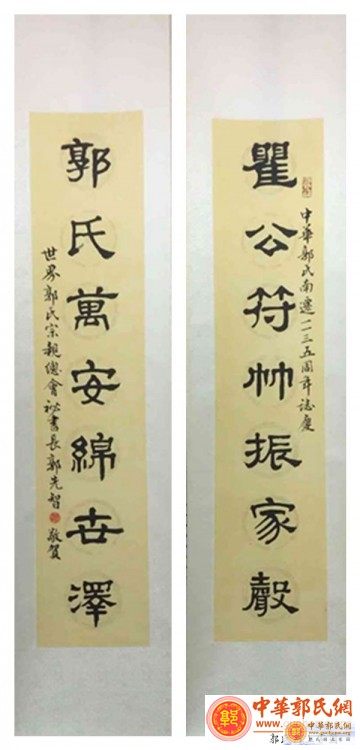 中華郭氏南遷一一三五周年誌慶
瞿公符竹振家聲
郭氏萬安綿世澤
世界郭氏宗親總會祕書長郭先智
敬賀
中華郭氏網